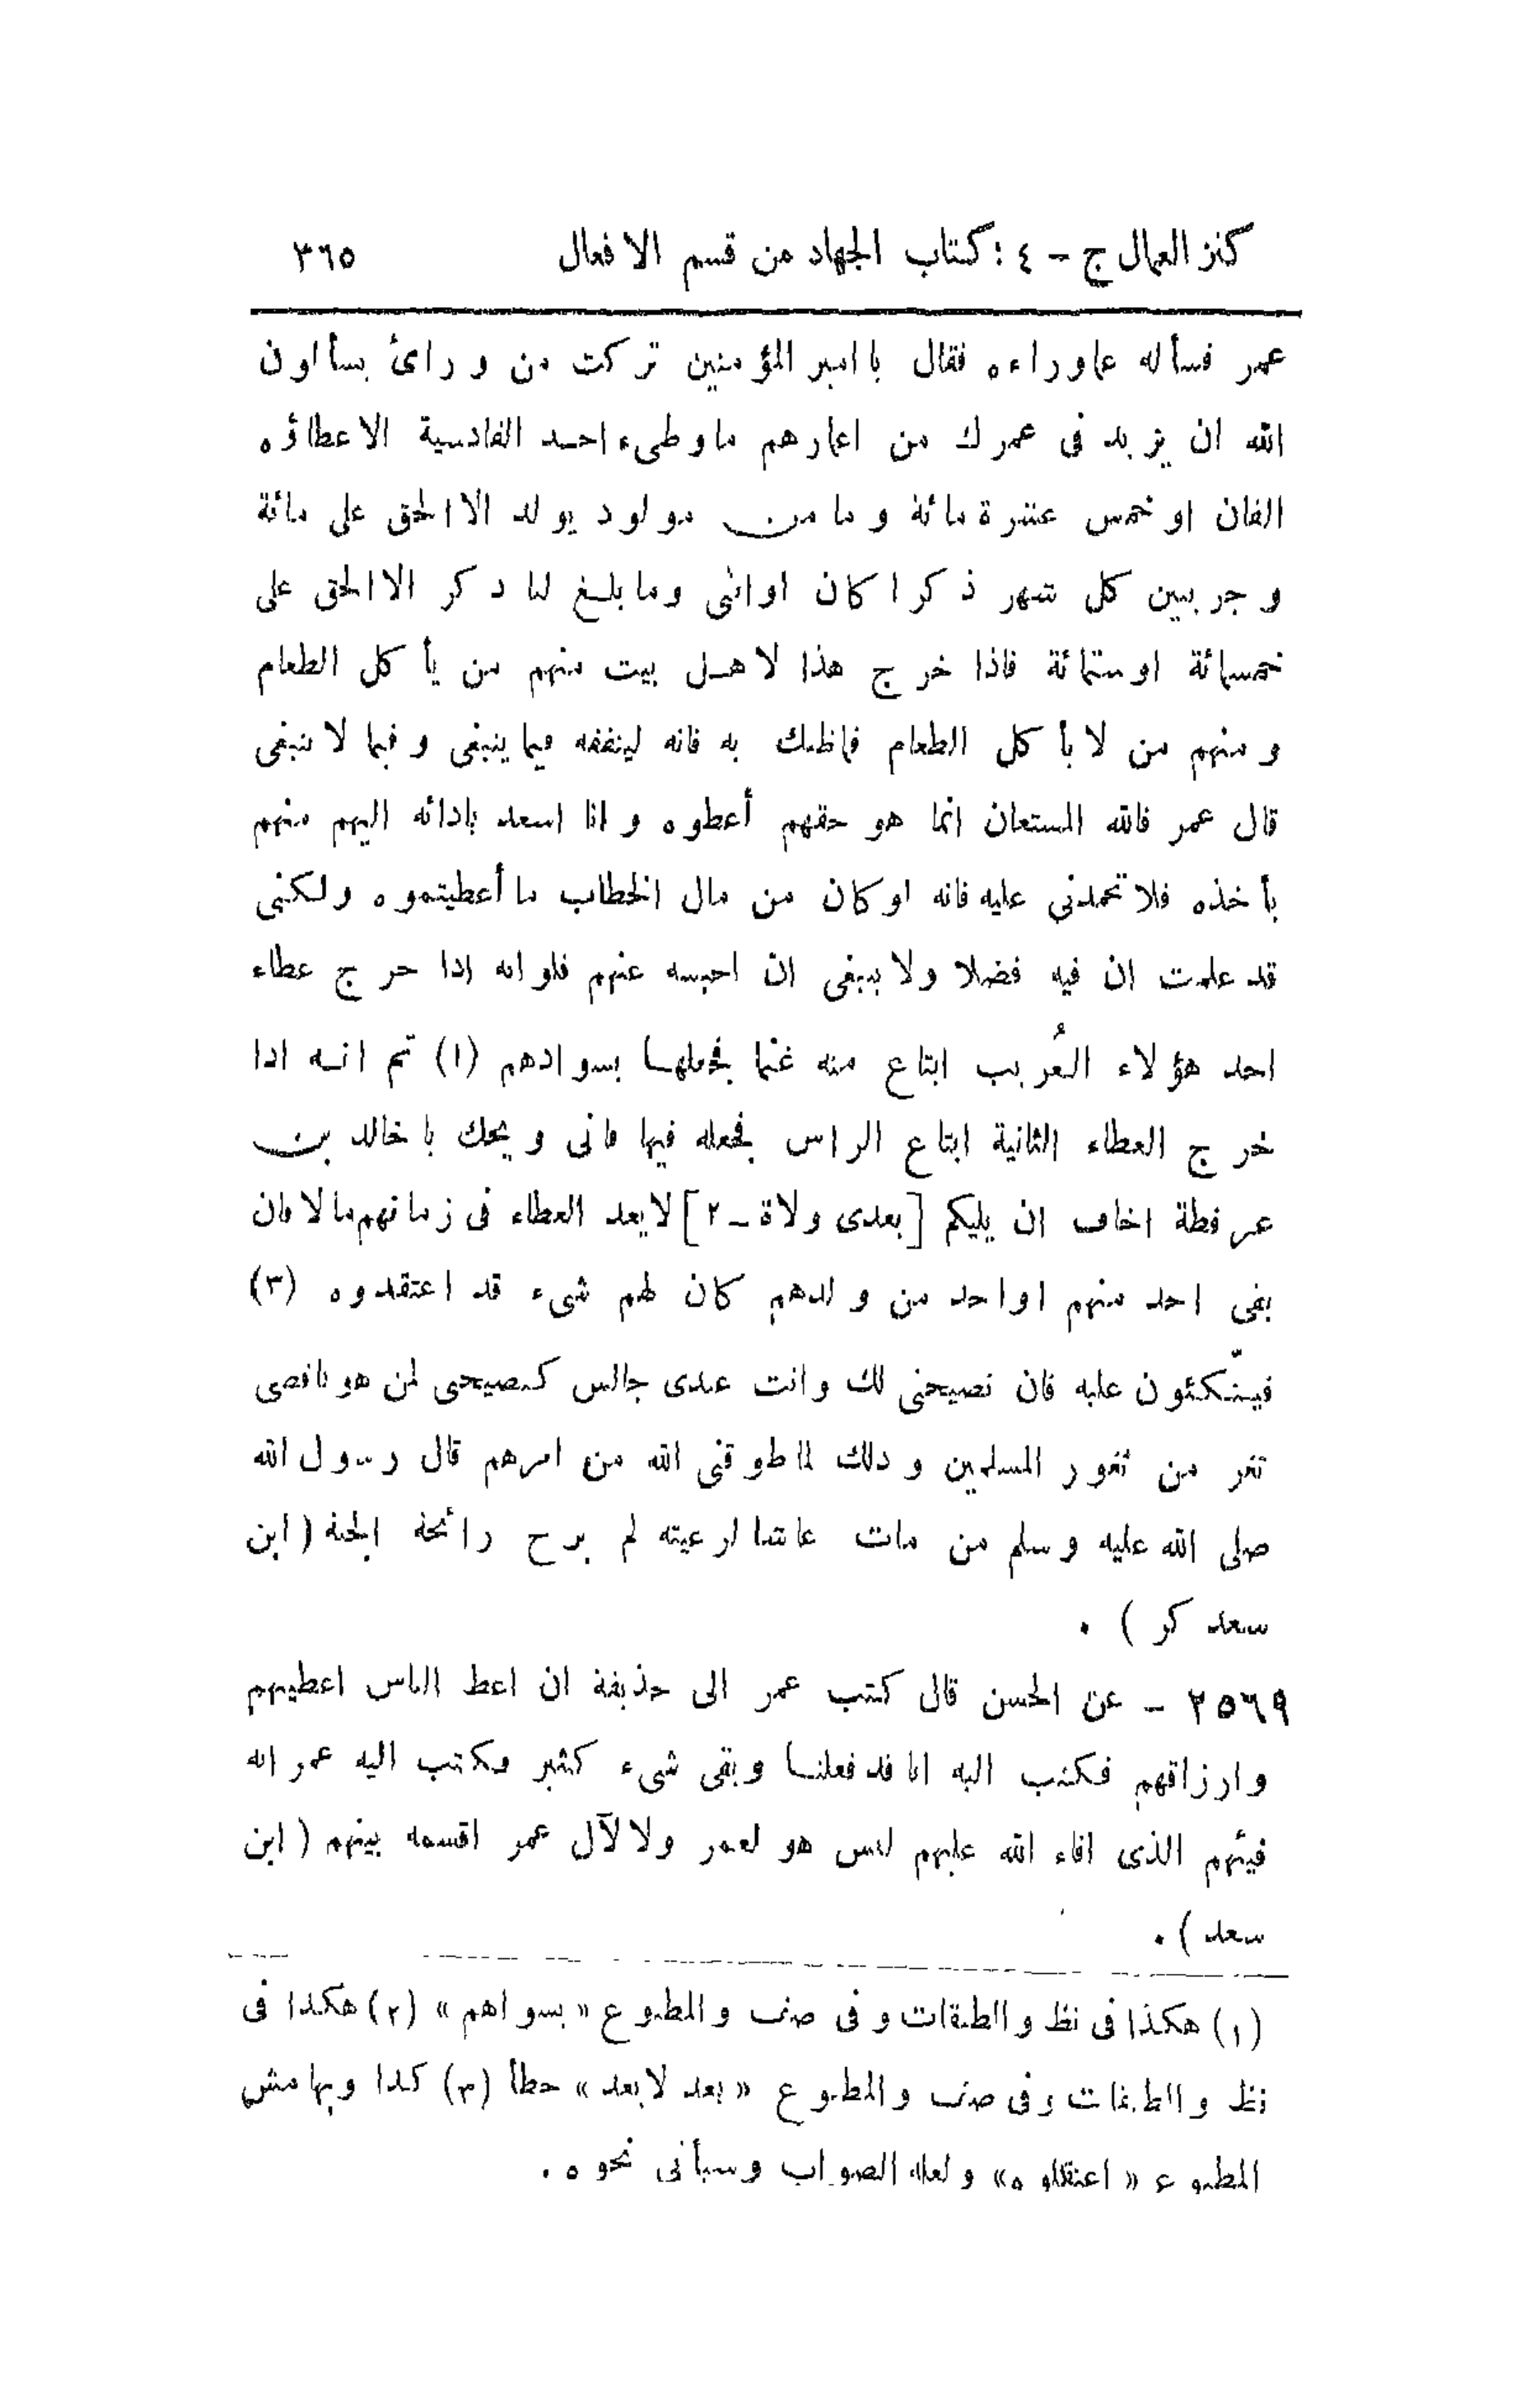 كنز العمال ج – ٤ : كتاب الجهاد من قسم الافعال ٣٦٥
عمر فسأله عما وراءه فقال يا امير المؤمنين تركت من ورائى يسألون
الله ان يزيد فى عمرك من اعمارهم ما وطىء احد القادسية الا عطاؤه
الفان او خمس عشرة مائة وما من مولود يولد الا الحق على مائة
وجريبين كل شهر ذكرا كان او انثى وما بلغ لنا ذكر الا الحق على
خمسمائة او ستمائة فاذا خرج هذا لاهل بيت منهم من يأكل الطعام
ومنهم من لا يأكل الطعام فما ظنك به فانه لينفقه فيما ينبغى وفيما لا ينبغى
قال عمر فالله المستعان انما هو حقهم أعطوه وانا اسعد بادائه اليهم منهم
بأخذه فلا تحمدنى عليه فانه لو كان من مال الخطاب ما أعطيتموه ولكنى
قد علمت ان فيه فضلا ولا ينبغى ان احبسه عنهم فلو انه اذا خرج عطاء
احد هؤلاء العُريب ابتاع منه غنما فجعلها بسوادهم (١) ثم انه اذا
خرج العطاء الثانية ابتاع الراس فجعله فيها فانى ويحك يا خالد بن
عرفطة اخاف ان يليكم [بعدى ولاة – ٢] لا يعد العطاء فى زمانهم مالا فان
بقى احد منهم او احد من ولدهم كان لهم شىء قد اعتقدوه (٣)
فيتّكئون عليه فان نصيحتى لك وانت عندى جالس كنصيحتى لمن هو باقصى
ثغر من ثغور المسلمين وذلك لما طوقنى الله من امرهم قال رسول الله
صلى الله عليه وسلم من مات غاشا لرعيته لم يرح رائحة الجنة (ابن
سعد كر) .
٢٥٦٩ – عن الحسن قال كتب عمر الى حذيفة ان اعط الناس اعطيهم
وارزاقهم فكتب اليه انا قد فعلنا وبقى شىء كثير فكتب اليه عمر انه
فيئهم الذى افاء الله عليهم ليس هو لعمر ولا لآل عمر اقسمه بينهم (ابن
سعد) .
(١) هكذا فى نظ والطبقات وفى صف والمطبوع «بسواهم» (٢) هكذا فى
نظ والطبقات وفى صف والمطبوع «بعد لا بعد» خطأ (٣) كذا وبهامش
المطبوع «اعتقلوه» ولعله الصواب وسيأتى نحوه .